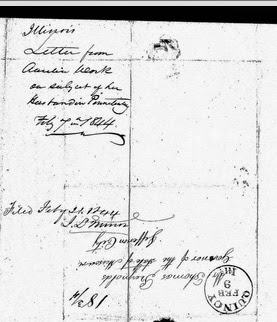 Illinois
Letter from
Work
on subject of her
Husband in Penitentiary
Feby 7th 1844
Filed Feby 21. 1844
Thomas Reynolds
Governor of the State of Missouri
Jefferson City
18 3/4
QUINCY
FEB
9